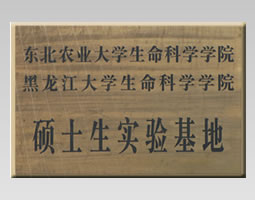 东北农业大学生命科学学院
黑龙江大学生命科学学院
硕士生实验基地